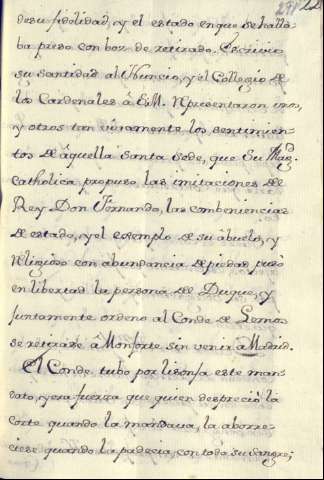 de su fidelidad, y el estado en que se halla-
ba preso con boz de retirado. Escrivio
su santidad al Nuncio, y el Collegio de
los Cardenales â S.M. Representaron unos,
y otros tan vivamente los sentimien-
tos de âquella Santa Sede, que Su Magd.
Catholica, propuso las imitaciones del
Rey Don Fernando, las combeniencias
de estado, y el exemplo de su abuelo, y
religioso con abundancia de piedad puso
en libertad la persona del Duque, y
juntamente ordeno al Conde de Lemos
se retirase â Monforte sin venir a Madrid.
El Conde tubo por lisonja este man-
dato, y era fuerza que quien despreciò la
Corte quando la mandava, la aborre-
ciese quando la padecia con todo su sangre;